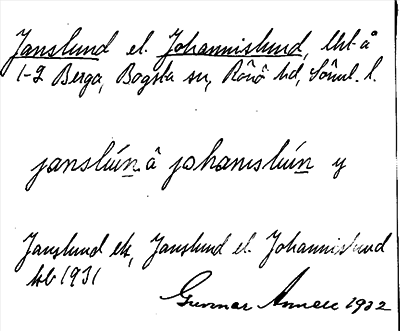 Janslund el. Johannislund, lht å
1-2 Berga, Bogsta sn, Rönö hd, Söml. l.
janslún å johanislún y
Janslund ek, Janslund el. Johannislund
hb 1931
Gunnar 1932